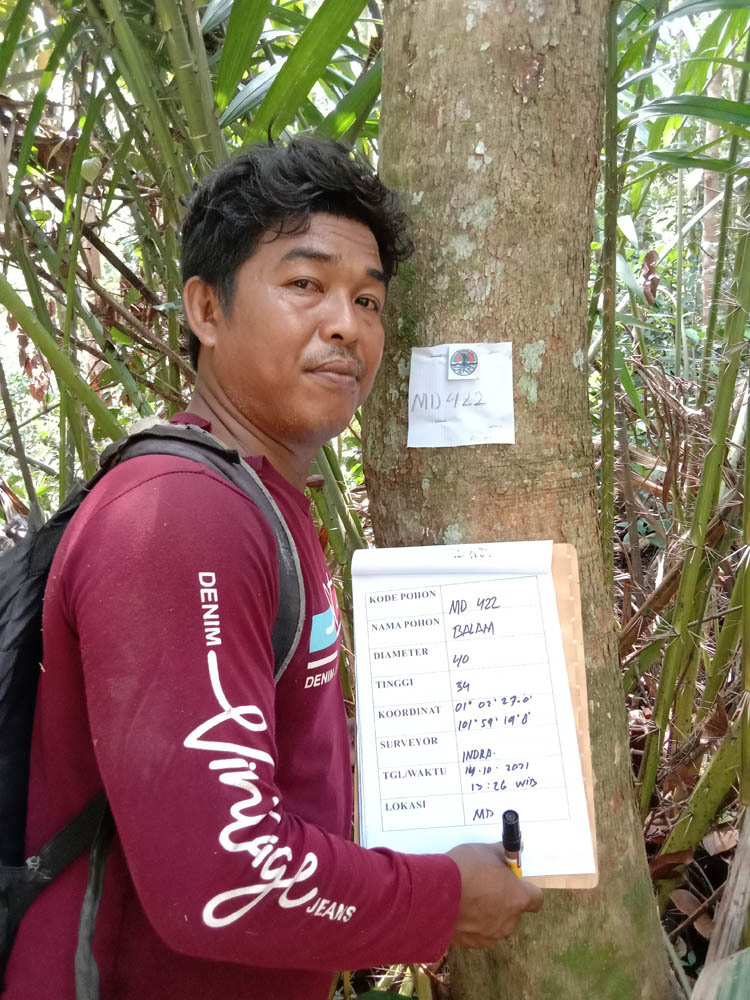 MD 422
KODE POHON MD 422
NAMA POHON BALAM
DIAMETER 40
TINGGI 34
KOORDINAT 01° 02' 27.0'
101° 59' 19.8'
SURVEYOR INDRA.
TGL/WAKTU 14.10.2021
13:26 WIB
LOKASI MD
DENIM
Vintage
JEANS
DENIM